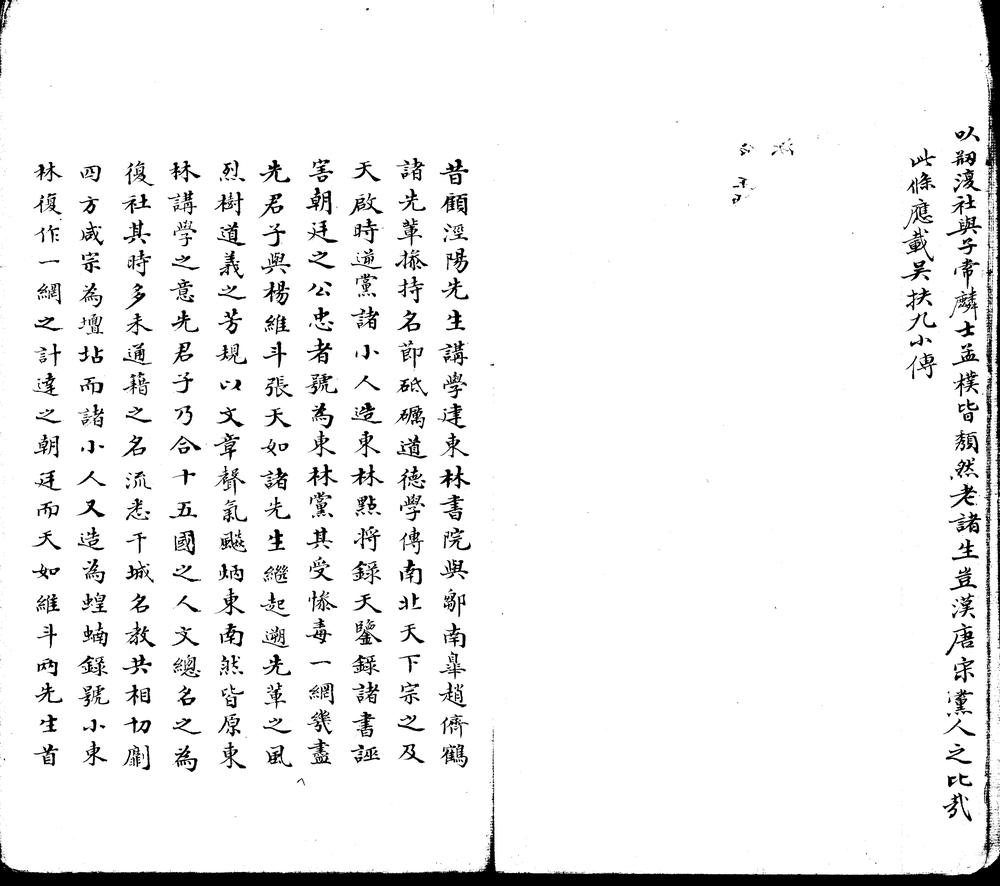 以翱復社與子常麟士孟樸皆頹然老諸生豈漢唐宋黨人之比哉
此條應載吴扶九小傳
昔顧涇陽先生講學建東林書院與鄒南臯趙儕鶴
諸先輩㨿持名節砥礪道德學傳南北天下宗之及
天啟時逆黨諸小人造東林點將錄天鑒錄諸書誣
害朝廷之公忠者號為東林黨其受慘毒一網幾盡
先君子與楊維斗張天如諸先生繼起遡先輩之風
烈樹道義之芳規以文章聲氣飈炳東南然皆原東
林講學之意先君子乃合十五國之人文總名之為
復社其時多未通籍之名流悉干城名教共相切劘
四方咸宗為壇坫而諸小人又造為蝗蝻錄號小東
林復作一網之計達之朝廷而天如維斗兩先生首